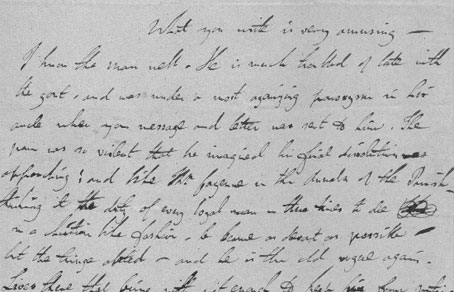 What you write is very amusing —
I know the man well. He is much troubled of late with
the gout, and was under a most agonizing paroxysm in his
ancle when you message and letter was sent to him. The
pain was so violent that he imagined his final dissolution was
approaching; and like Mr in the Annals of the Parish
thinking it the duty of every loyal man in these times to die
in a christian like fashion, became as devout as possible
but the twinge abated — and he is the old rogue again.
Lives there that being with wit enough to keep from